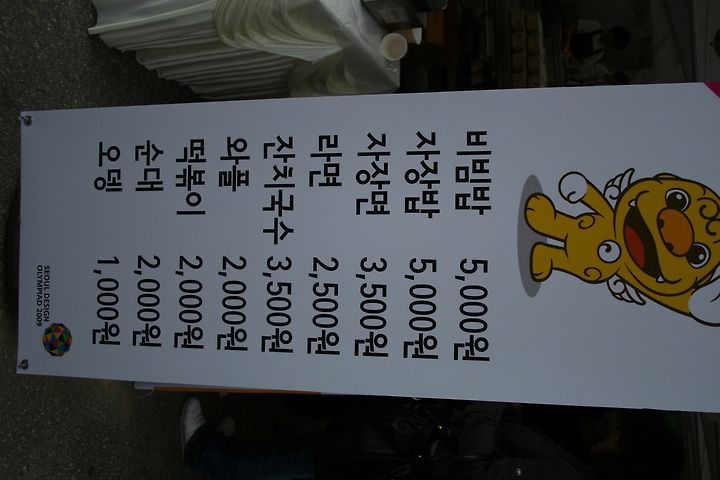 비빔밥 5,000원
자장밥 5,000원
자장면 3,500원
라면 2,500원
잔치국수 3,500원
와플 2,000원
떡볶이 2,000원
순대 2,000원
오뎅 1,000원
SEOUL DESIGN
OLYMPIAD 2009